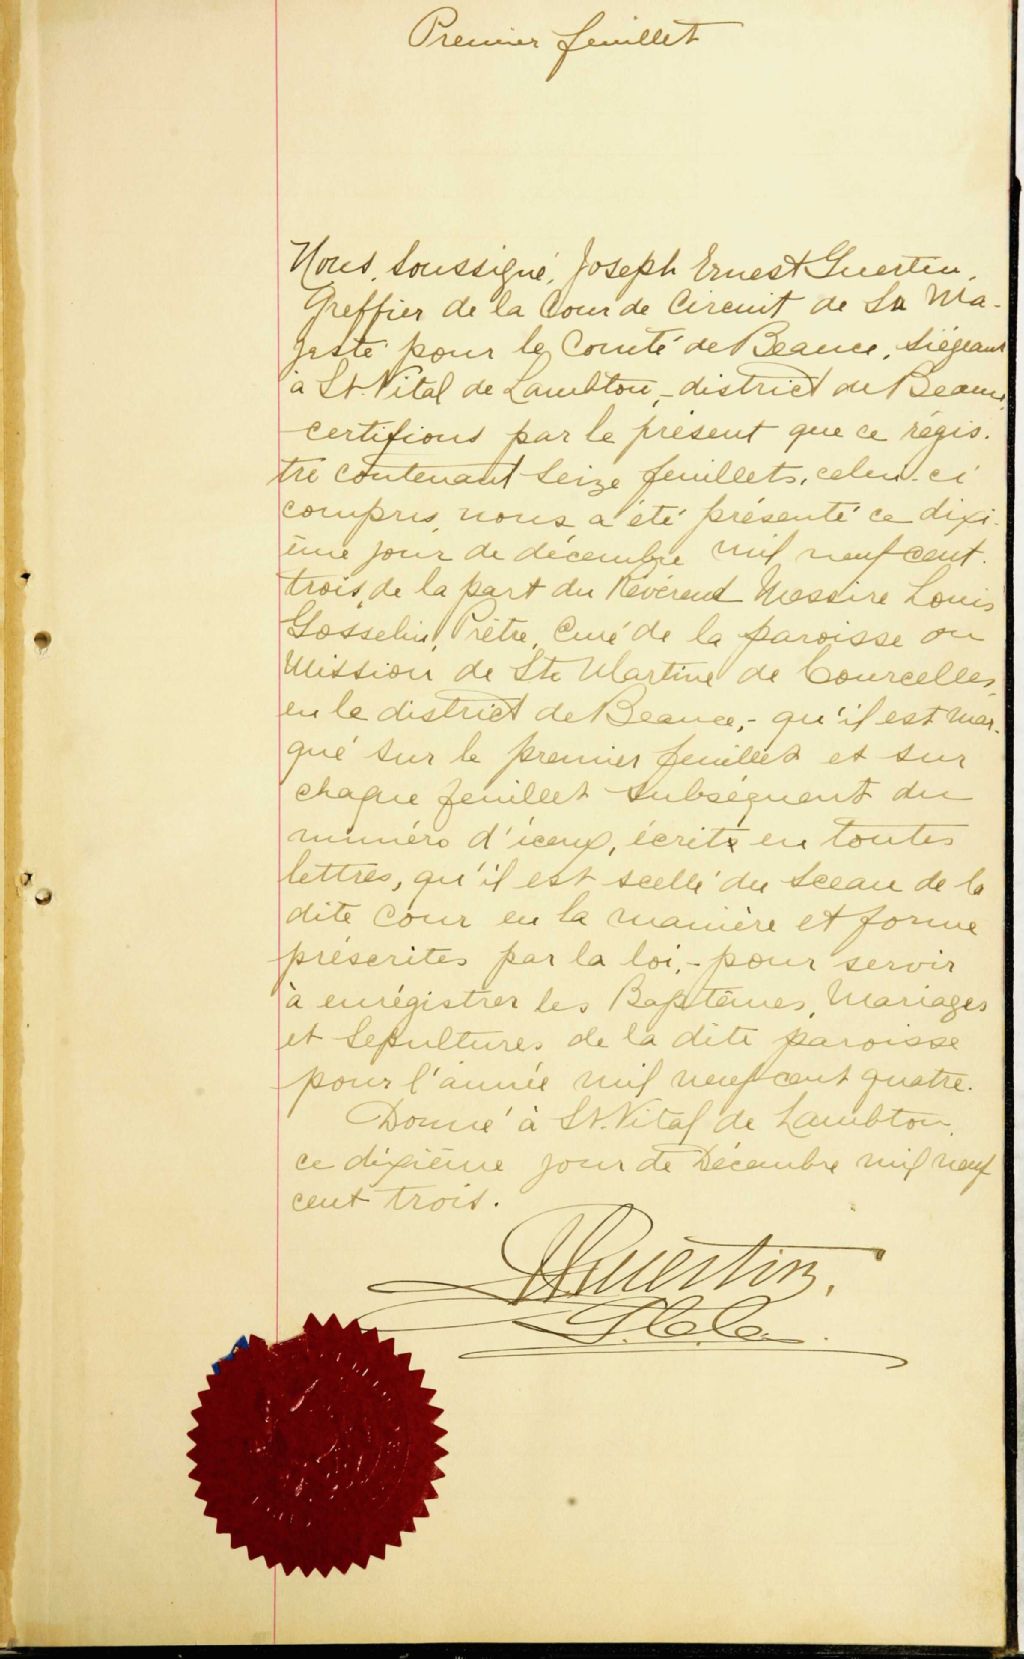 Premier feuillet
Nous, soussigné, Joseph Ernest Guertin,
Greffier de la Cour de Circuit de Sa Ma-
jesté pour le Comté de Beauce, siégeant
à St. Vital de Lambton,- district de Beauce,
certifions par le présent que ce régis-
tre contenant seize feuillets, celui-ci
compris, nous a été présenté ce dixi-
ème jour de décembre mil neuf cent
trois, de la part du Révérend Messire Louis
Gosselin, Prêtre, Curé de la paroisse ou
Mission de Ste Martine de Courcelles,
en le district de Beauce,- qu'il est mar-
qué sur le premier feuillet et sur
chaque feuillet subséquent du
numéro d'iceux, écrits en toutes
lettres, qu'il est scellé du sceau de la
dite cour en la manière et forme
préscrites par la loi,- pour servir
à enrégistrer les Baptêmes, Mariages
et Sépultures de la dite paroisse
pour l'année mil neuf cent quatre.
Donné à St. Vital de Lambton,
ce dixième jour de Décembre mil neuf
cent trois.
Guertin,
G.C.C.